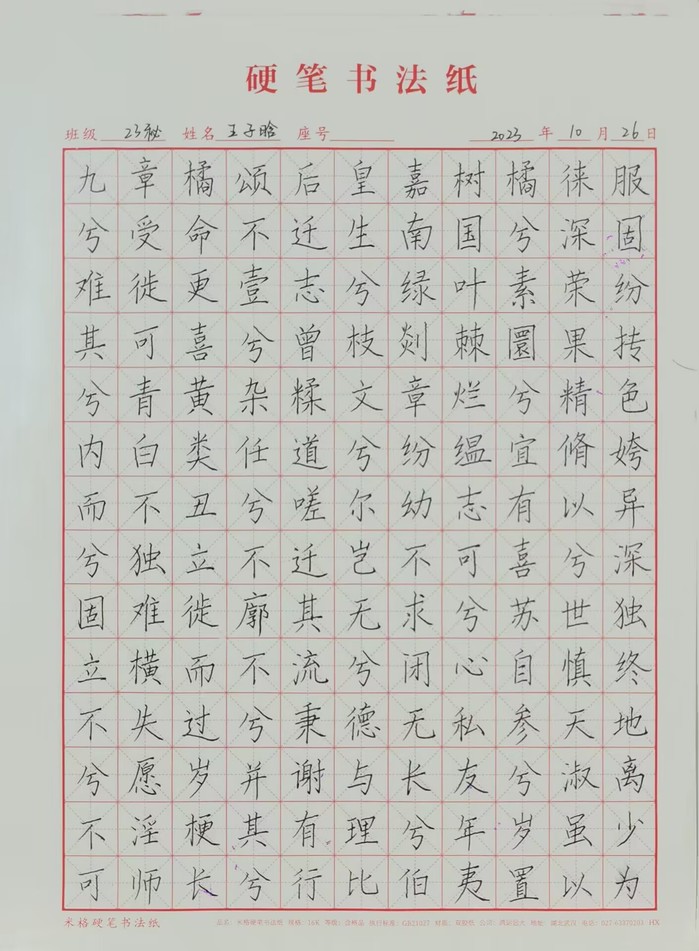 硬笔书法纸
班级 23秘 姓名 王子晗 座号 2023 年 10 月 26 日
九章橘颂后皇嘉树橘徕服
兮受命不迁生南国兮深固
难徙更壹志兮绿叶素荣纷
其可喜兮曾枝剡棘圜果抟
兮青黄杂糅文章烂兮精色
内白类任道兮纷缊宜脩姱
而不丑兮嗟尔幼志有以异
兮独立不迁岂不可喜兮深
固难徙廓其无求兮苏世独
立横而不流兮闭心自慎终
不失过兮秉德无私参天地
兮愿岁并谢与长友兮淑离
不淫梗其有理兮年岁虽少
可师长兮行比伯夷置以为
米格硬笔书法纸